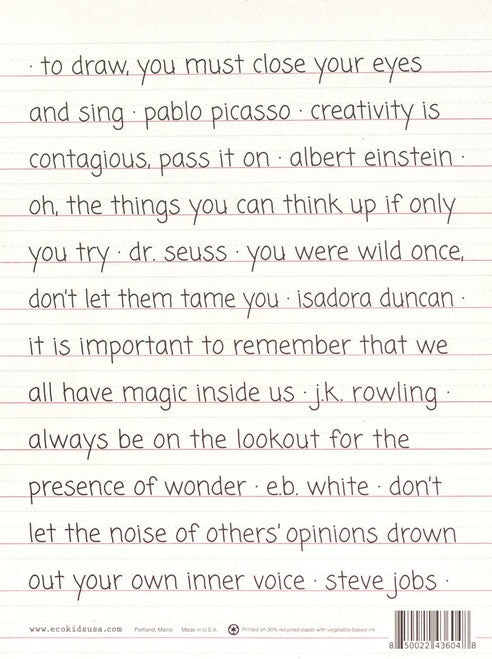 · to draw, you must close your eyes
and sing · pablo picasso · creativity is
contagious, pass it on · albert einstein ·
oh, the things you can think up if only
you try · dr. seuss · you were wild once,
don't let them tame you · isadora duncan ·
it is important to remember that we
all have magic inside us · j.k. rowling ·
always be on the lookout for the
presence of wonder · e.b. white · don't
let the noise of others' opinions drown
out your own inner voice · steve jobs ·
www.ecokidsusa.com Portland, Maine Made in U.S.A. Printed on 30% recycled paper with vegetable-based ink.
8 50022 43604 8